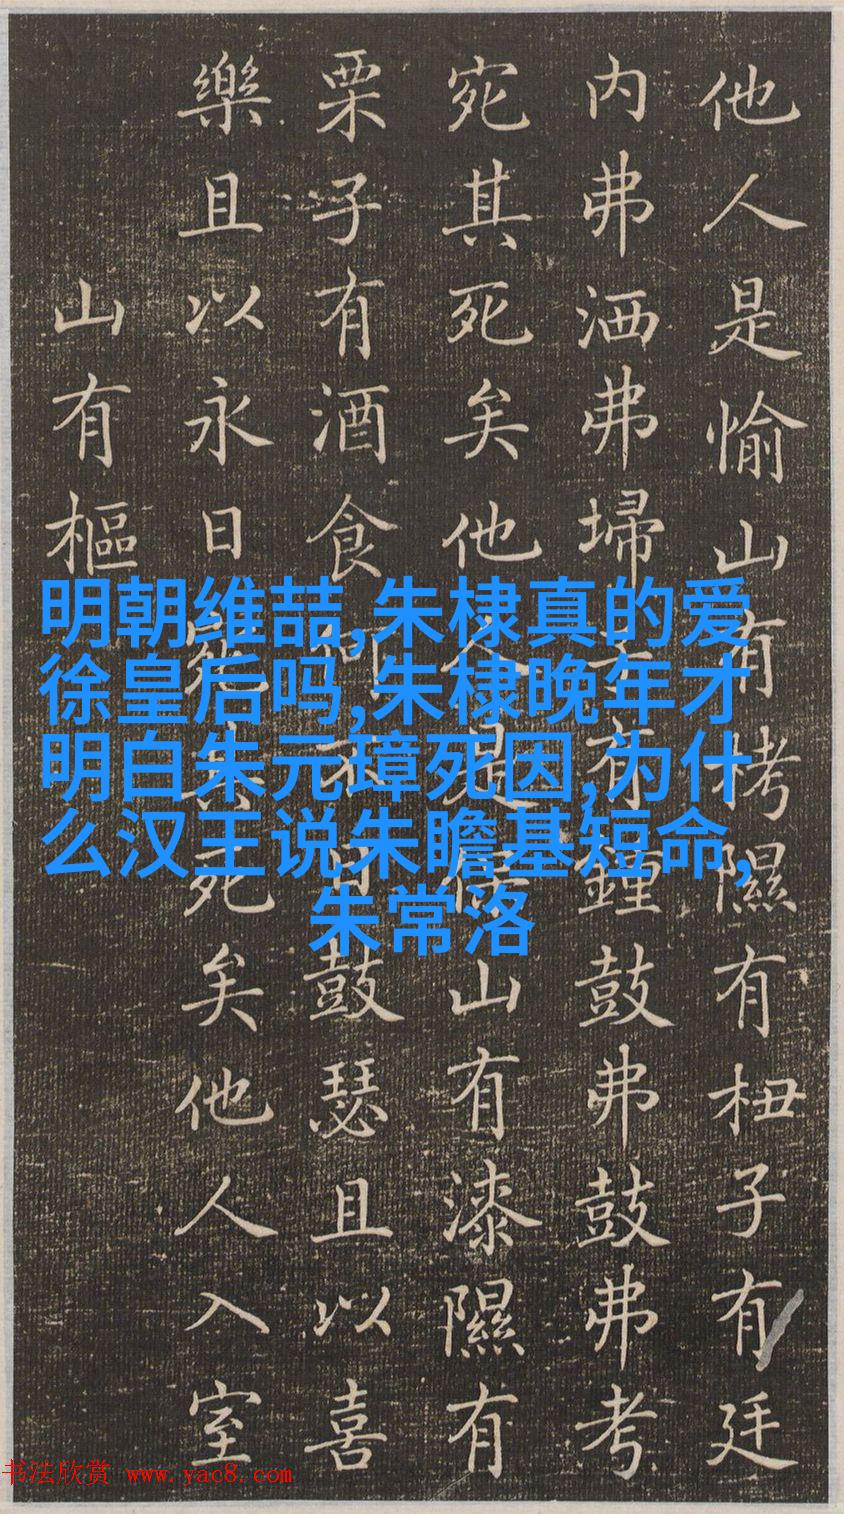 他人是愉山有栲隰有杻子有廷
内弗洒弗埽子有鍾鼓弗鼓弗考
宛其死矣他人是保山有漆隰有
栗子有酒食何不日鼓瑟且以喜
樂且以永日宛其死矣他人入室
山有樞
明朝维喆,朱棣真的爱
徐皇后吗,朱棣晚年才
明白朱元璋死因,为什
么汉王说朱瞻基短命,
朱常洛
书法欣赏 www.yac8.com